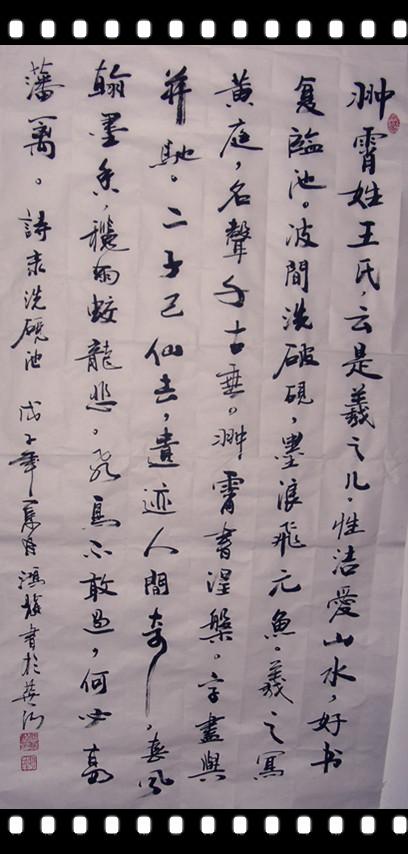 翀霄姓王氏,云是羲之儿。性洁愛山水,好书
复臨池。波間洗破硯,墨浪飛元魚。羲之寫
黄庭,名聲千古垂。翀霄書涅槃。字畫與
并馳。二子已仙去,遺迹人間奇,春風
翰墨香,穐雨蛟龍悲。飛鳥不敢過,何必高
藩篱。詩录洗硯池 戊子年夏月鴻 書於